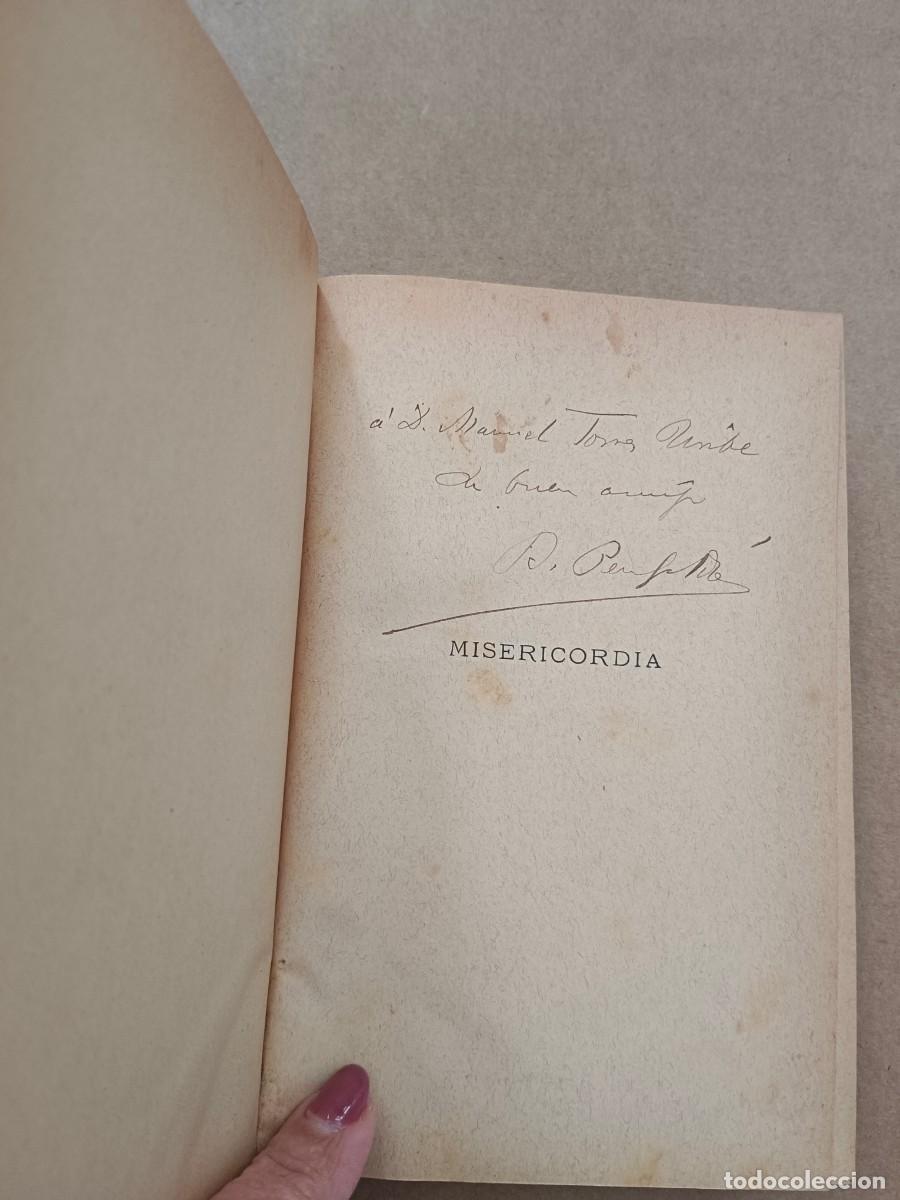 á D. Manuel Torres Uribe
Su buen amigo
B. Perez Galdós
MISERICORDIA
todocoleccion